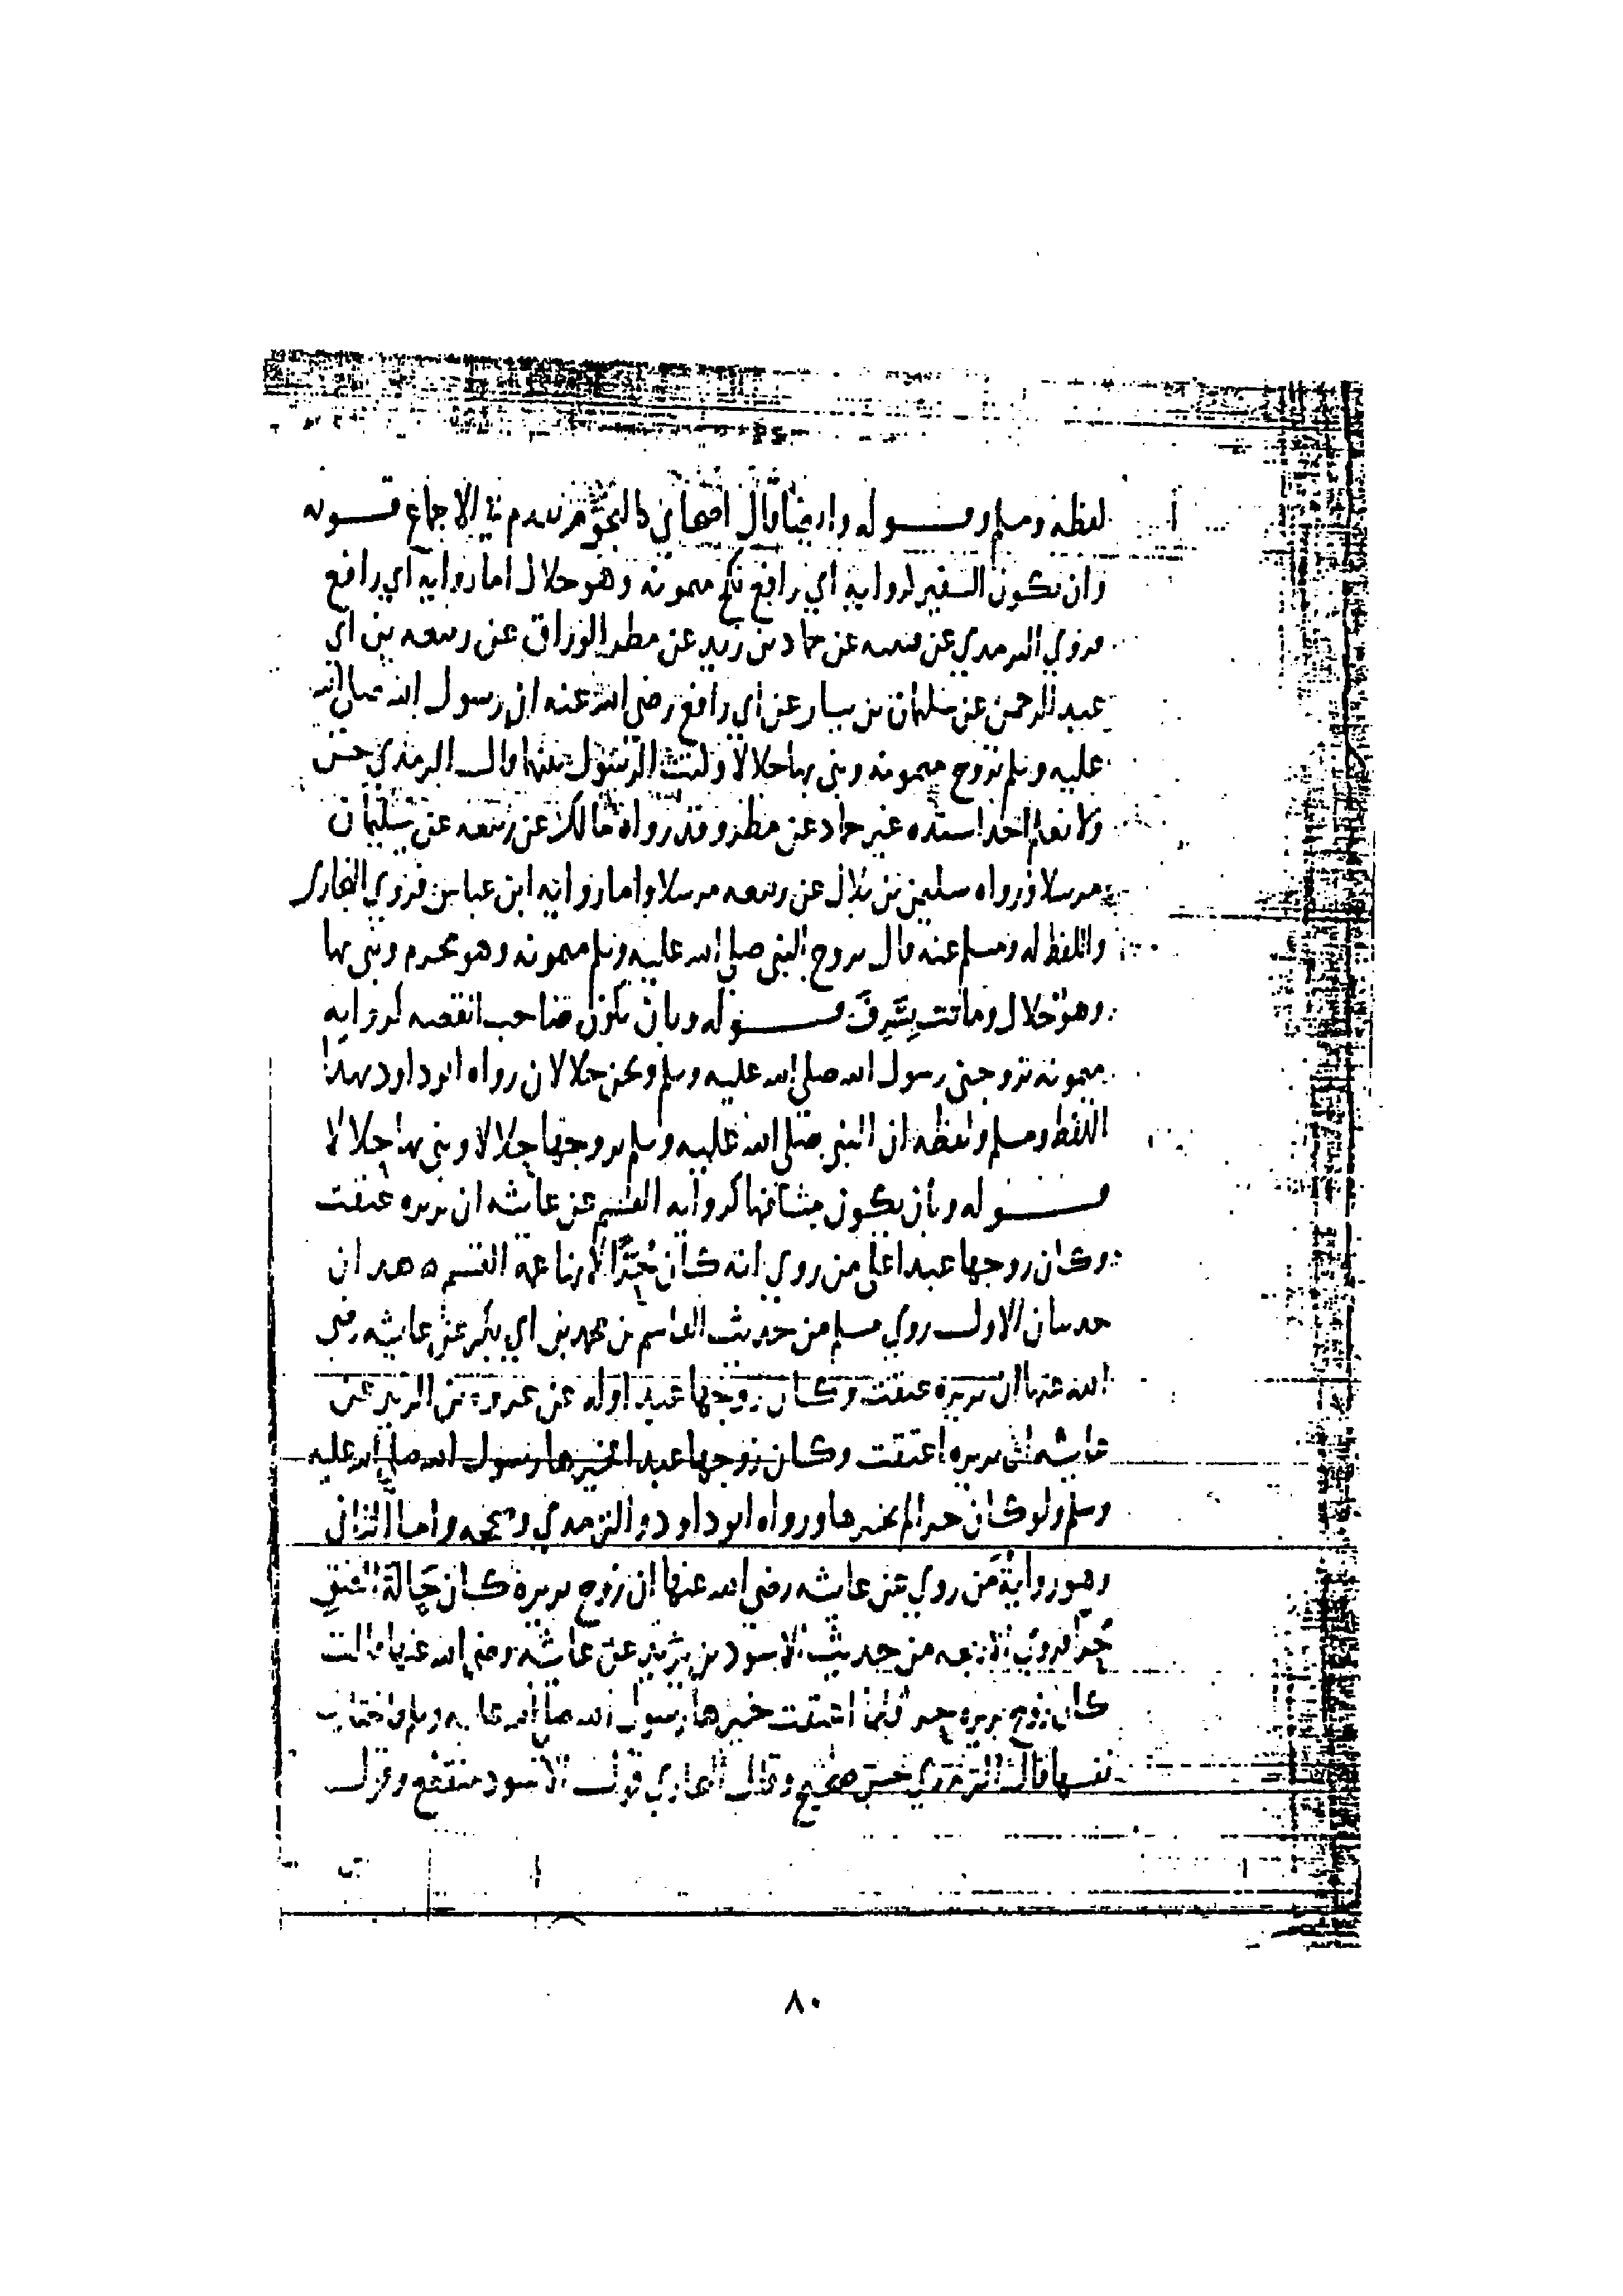 لفظه ومسلم وقـــوله وايضا قال اصحابي كالنجوم تقدم في الاجماع قـــوله
وان يكون السفير لرواية ابي رافع نكح ميمونة وهو حلال اما رواية ابي رافع
فروي الترمذي عن قتيبه عن حماد بن زيد عن مطر الوراق عن ربيعه بن ابي
عبد الرحمن عن سليمان بن يسار عن ابي رافع رضي الله عنه ان رسول الله صلى الله
عليه وسلم تزوج ميمونه وبنى بها حلالا وكنت الرسول بينهما قال الترمذي حسن
ولا نعلم احدا اسنده غير حماد عن مطر وقد رواه مالك عن ربيعه عن سليمان
مرسلا ورواه سليمن بن بلال عن ربيعه مرسلا واما روايه ابن عباس فروي البخاري
واللفظ له ومسلم عنه قال تزوج النبي صلى الله عليه وسلم ميمونه وهو محرم وبنى بها
وهو حلال وماتت بسَرِفَ قـــوله وبان يكون صاحب القصه كروايه
ميمونه تزوجني رسول الله صلى الله عليه وسلم ونحن حلالان رواه ابو داود بهذا
اللفظ ومسلم ولفظه ان النبي صلى الله عليه وسلم تزوجها حلالا وبنى بها حلالا
قـــوله وبان يكون مشافها كروايه القسم عن عايشه ان بريره عتقت
وكان زوجها عبدا على من روي انه كان حُرًّا لانها عمة القسم ه هذان
حديثان الاول روي مسلم من حديث القاسم بن محمد بن ابي بكر عن عايشه رضي
الله عنها ان بريره عتقت وكان زوجها عبدا وله عن عروة بن الزبير عن
عايشه ان بريره اعتقت وكان زوجها عبدا فخيرها رسول الله صلى الله عليه
وسلم ولو كان حرا لم يخيرها ورواه ابو داود والترمذي وصححه واما الثاني
وهو روايةُ مَن روي عن عايشه رضي الله عنها ان زوج بريرة كان حَالَةَ العتقِ
حُرًّا فروي الاربعه من حديث الاسود بن يزيد عن عايشه رضي الله عنها قالت
كان زوج بريره حرا فلما اعتقت خيرها رسول الله صلى الله عليه وسلم فاختارت
نفسها قال الترمذي حسن صحيح وقال البخاري قول الاسود منقطع وقول
٨٠